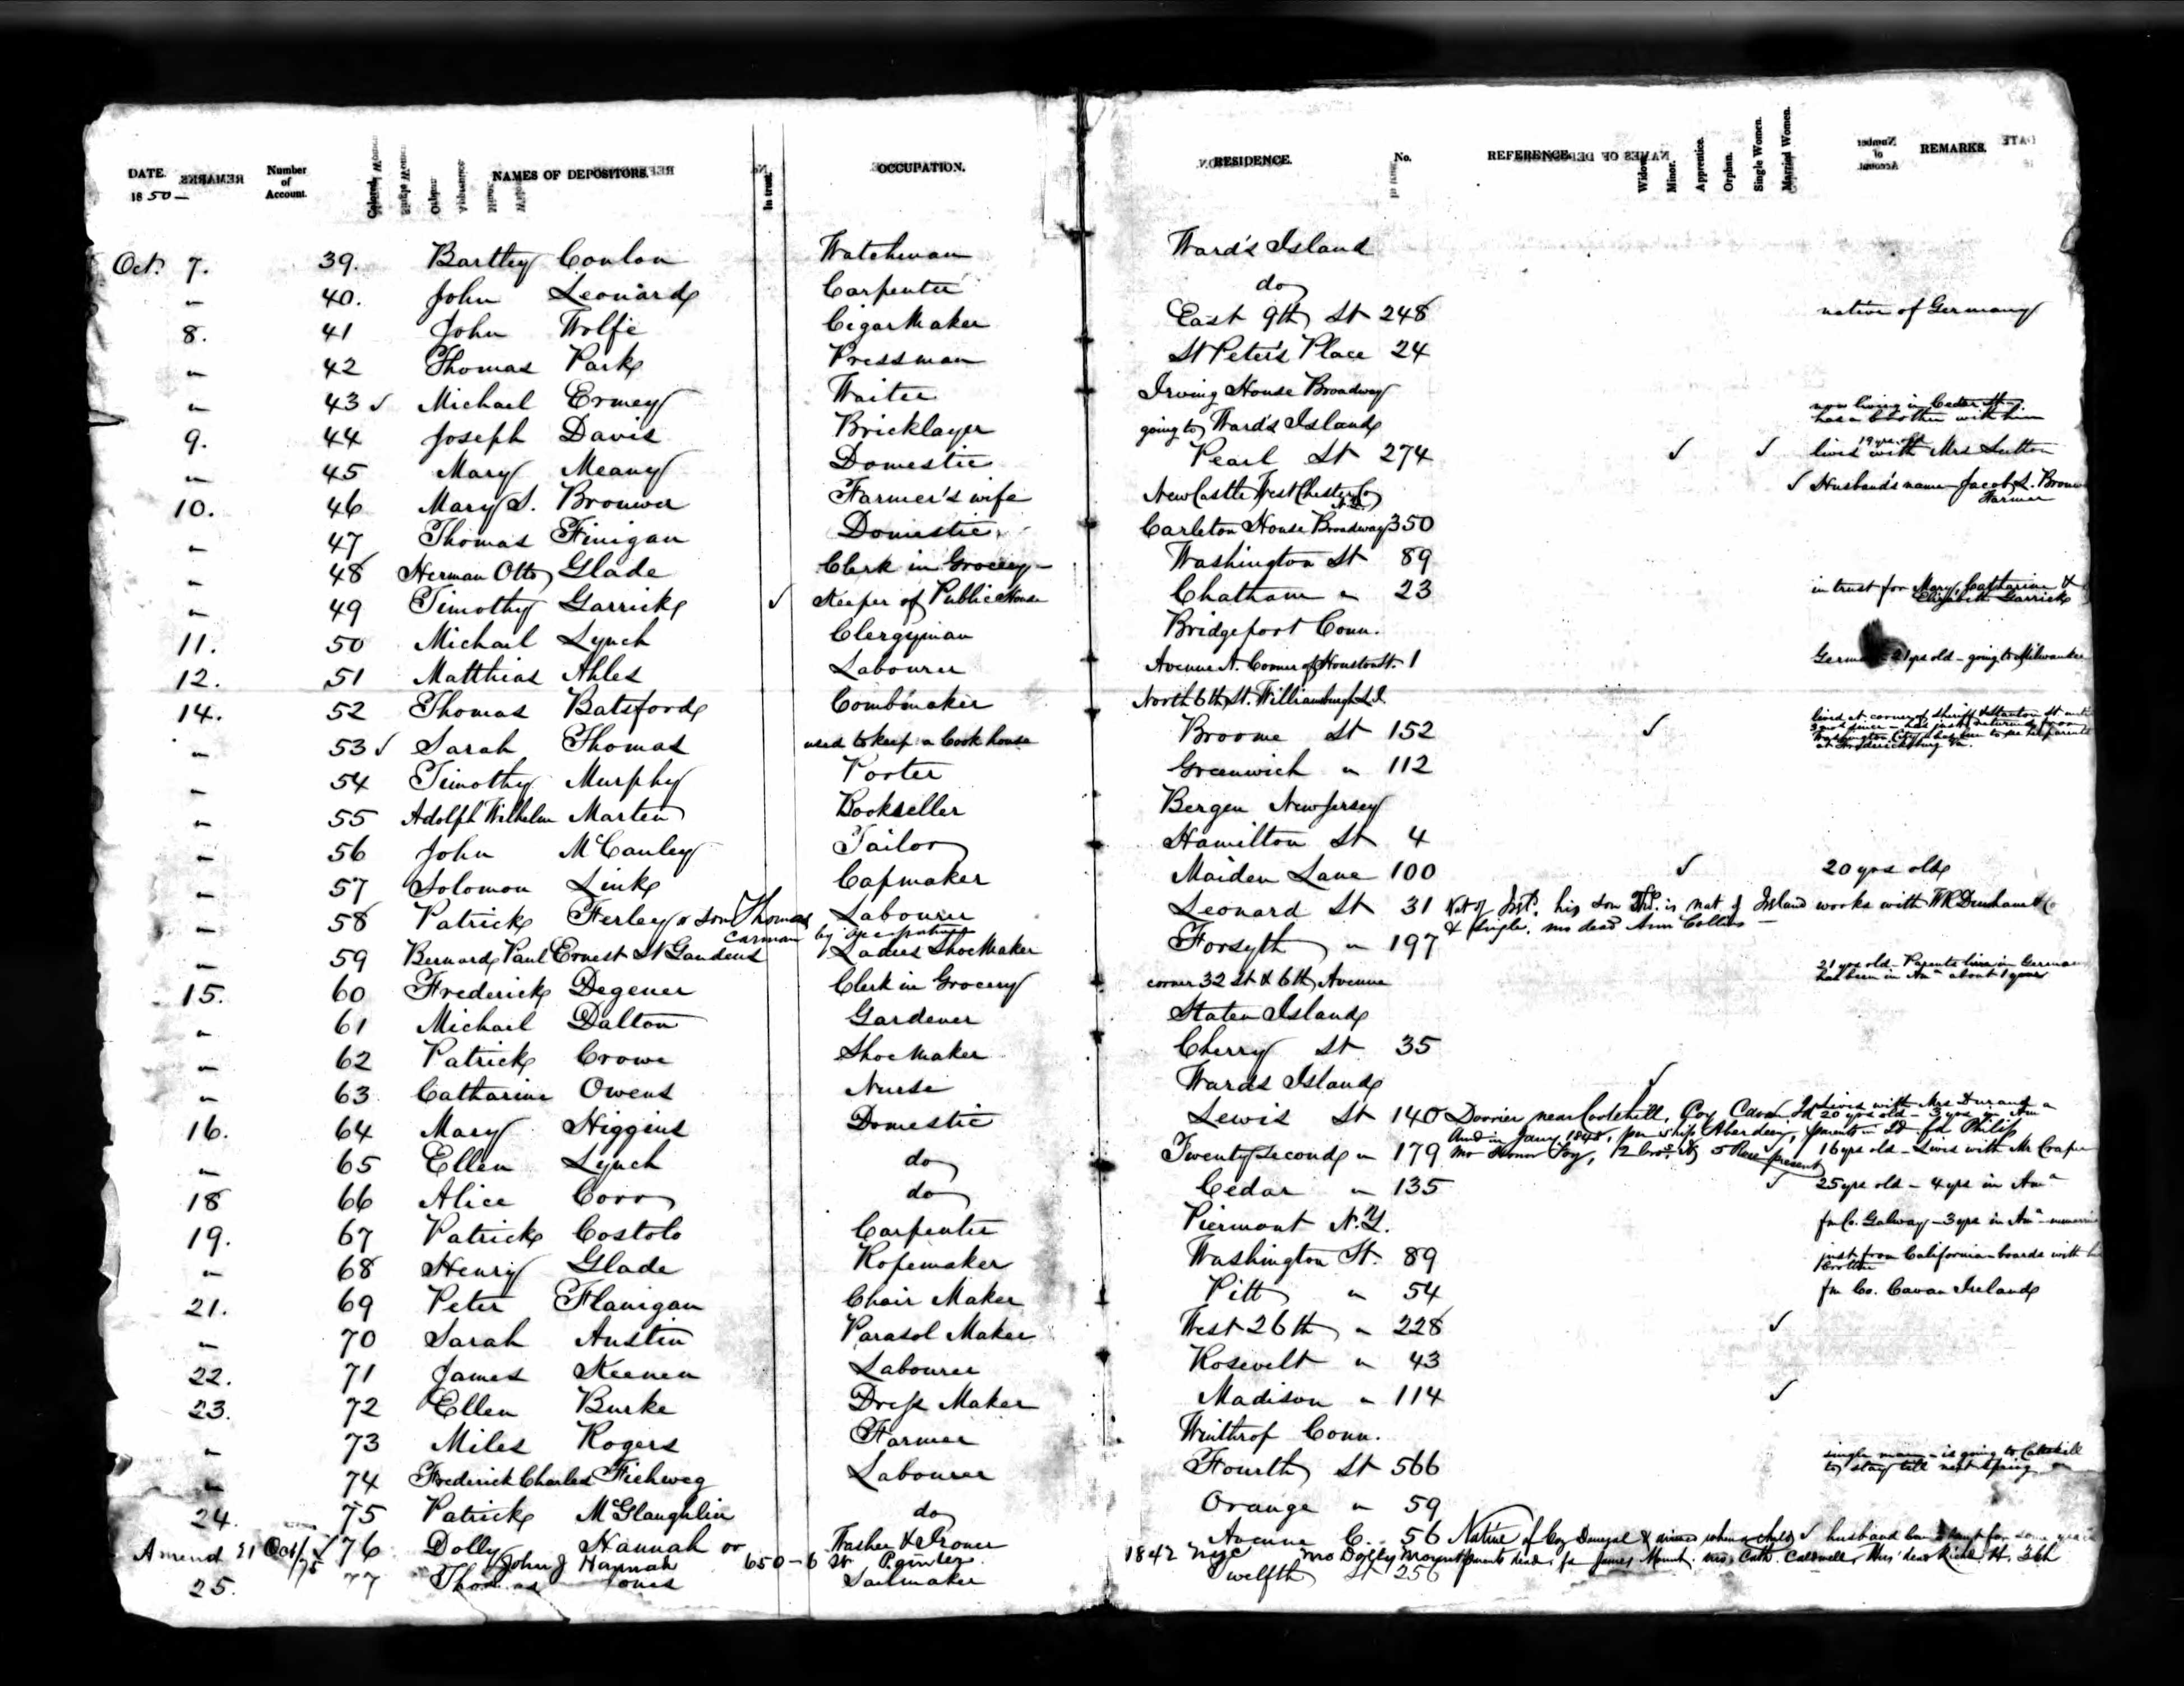 DATE. Number of Account. Colored. NAMES OF DEPOSITORS. In trust. OCCUPATION. RESIDENCE. No. REFERENCE. Widow. Minor. Apprentice. Orphan. Single Women. Married Women. REMARKS.
1850-
Oct. 7. 39. Bartley Conlon Watchman Ward's Island
" 40. John Leonard Carpenter do
8. 41 John Wolfe Cigar Maker East 9th St 248 native of Germany
" 42 Thomas Park Pressman St Peter's Place 24
" 43 ✓ Michael Ermey Waiter Irving House Broadway
9. 44 Joseph Davis Bricklayer going to Ward's Island now living in Cedar St - has a brother with him
" 45 Mary Meany Domestic Pearl St 274 ✓ ✓ 19 yrs. old lives with Mrs Sutton
10. 46 Mary S. Brouwer Farmer's wife New Castle West Chester Co N.Y. ✓ Husband's name - Jacob L. Brouw Farmer
" 47 Thomas Finigan Domestic Carleton House Broadway 350
" 48 Herman Otto Glade Clerk in Grocery - Washington St 89
" 49 Timothy Garrick ✓ Keeper of Public House Chatham " 23 in trust for Mary, Catharine & Elizabeth Garrick
11. 50 Michael Lynch Clergyman Bridgeport Conn.
12. 51 Matthias Ahles Labourer Avenue A. Corner of Houston St. 1 German - 21 yrs old - going to Milwaukee
14. 52 Thomas Batsford Combmaker North 6th St. Williamsburgh L.I.
" 53 ✓ Sarah Thomas used to keep a Cook house Broome St 152 ✓ lived at corner of Sheriff & Stanton St until - has just returned from Washington City - has been to see her parents at Fredericksburg Va.
" 54 Timothy Murphy Porter Greenwich " 112
" 55 Adolph Wilhelm Marten Bookseller Bergen New Jersey
" 56 John McCauley Tailor Hamilton St 4
" 57 Solomon Link Capmaker Maiden Lane 100 ✓ 20 yrs old
" 58 Patrick Ferley or son Thomas Labourer Leonard St 31 Nat of Irel. his son Thos. is nat of Ireland works with
carman by occupation & single. mo dead Ann Collins
" 59 Bernard Paul Ernest St Gaudens Ladies Shoe Maker Forsyth " 197
15. 60 Frederick Degener Clerk in Grocery corner 32 St & 6th Avenue 21 yrs old - Parents live in German has been in Ama about 1 year
" 61 Michael Dalton Gardener Staten Island
" 62 Patrick Crowe Shoe Maker Cherry St 35
" 63 Catharine Owens Nurse Wards Island ✓
16. 64 Mary Higgins Domestic Lewis St 140 near Cootehill, Coy Cavan Id Lives with Mrs Durand 20 yrs old - 3 yrs in Am
Arrd in Jany. 1848, per ship Aberdeen, parents in Id fa Philip
" 65 Ellen Lynch do Twenty Second " 179 mo Honor Foy, 16 yrs old - Lives with Mr
18 66 Alice Corr do Cedar " 135 ✓ 25 yrs old - 4 yrs in Ama
19. 67 Patrick Costolo Carpenter Piermont N.Y. fm Co. Galway - 3 yrs in Ama
" 68 Henry Glade Ropemaker Washington St. 89 just from California boards with brother
21. 69 Peter Flanigan Chair Maker Pitt " 54 fm Co. Cavan Ireland
" 70 Sarah Austin Parasol Maker West 26th " 228 ✓
22. 71 James Keenen Labourer Rosevelt " 43
23. 72 Ellen Burke Dress Maker Madison " 114 ✓
" 73 Miles Rogers Farmer Winthrop Conn.
" 74 Frederick Charles Fichweg Labourer Fourth St 566 single man - is going to Catskill to stay till next Spring
24. 75 Patrick McGlaughlin do Orange " 59
Amend 21 Oct/75 ✓ 76 Dolly Hannah or Washer & Ironer Avenue C. 56 Native of Coy Donegal & arrived when a child ✓ husband for some years
John J Hannah 650-6 St 1842 nyc mo Dolly Mount parents dead: fa James Mount, mo Cath. Caldwell, Hus' dead Richd. H.
25. 77 Thomas Jones Sailmaker Twelfth St 256